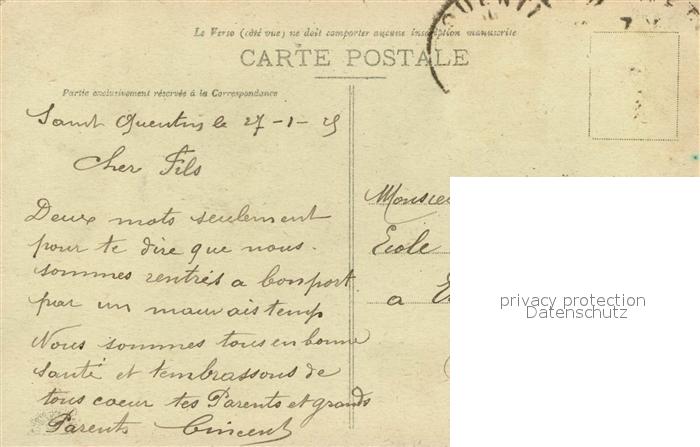 Le Verso (côté vue) ne doit comporter aucune inscription manuscrite
CARTE POSTALE
Partie exclusivement réservée à la Correspondance
Saint Quentin le 27-1-25
Cher Fils
Deux mots seulement
pour te dire que nous
sommes rentrés a bon port
par un mauvais temp
Nous sommes tous en bonne
santé et t'embrassons de
tous coeur tes Parents et grands
Parents Vincent
Monsieu
Ecole
a
privacy protection
Datenschutz
QUENTI